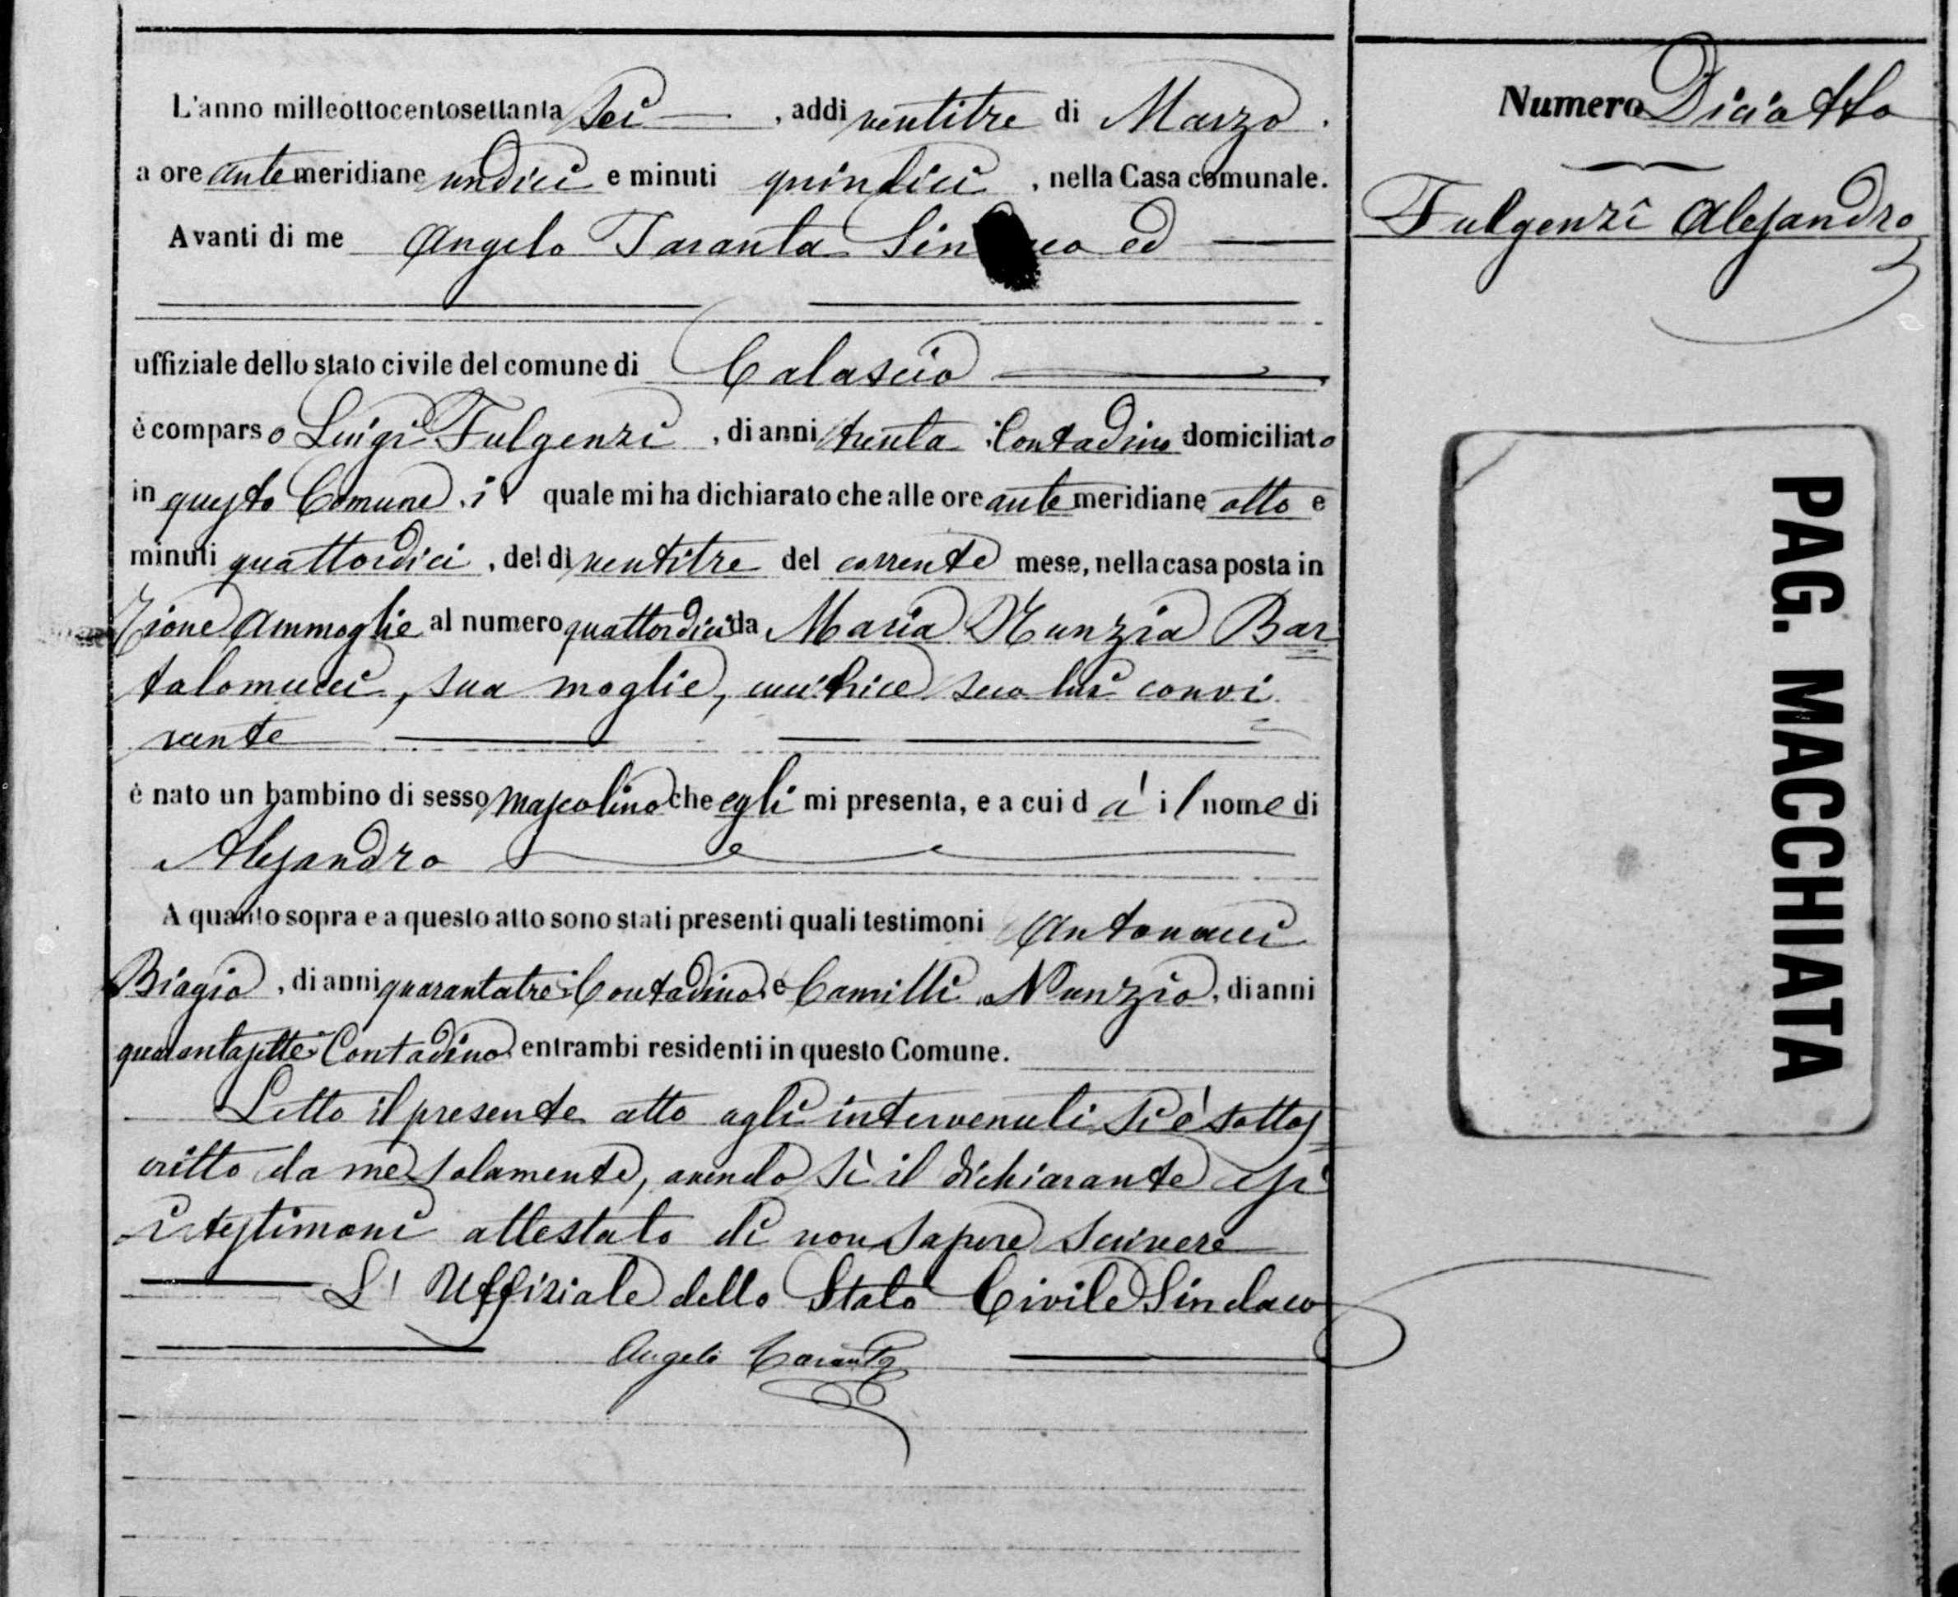 L'anno milleottocentosettanta sei, addì ventitre di Marzo,
a ore antemeridiane undici e minuti quindici, nella Casa comunale.
Avanti di me Angelo Taranta Sindaco ed
uffiziale dello stato civile del comune di Calascio
è comparso Luigi Fulgenzi, di anni trenta, Contadino domiciliato
in questo Comune, il quale mi ha dichiarato che alle ore antemeridiane otto e
minuti quattordici, del dì ventitre del corrente mese, nella casa posta in
Rione Ammoglie al numero quattordici da Maria Nunzia Bar
tolomucci, sua moglie, cucitrice, seco lui convi
vente
è nato un bambino di sesso mascolino che egli mi presenta, e a cui dà il nome di
Alesandro
A quanto sopra e a questo atto sono stati presenti quali testimoni Antonacci
Biagio, di anni quarantatre, Contadino, e Camilli Nunzio, di anni
quarantasette Contadino, entrambi residenti in questo Comune.
Letto il presente atto agli intervenuti si è sottos
critto da me solamente, avendo sì il dichiarante che
i testimoni attestato di non sapere scrivere
L'Uffiziale dello Stato Civile Sindaco
Angelo Taranta
Numero Diciotto
Fulgenzi Alesandro
PAG. MACCHIATA